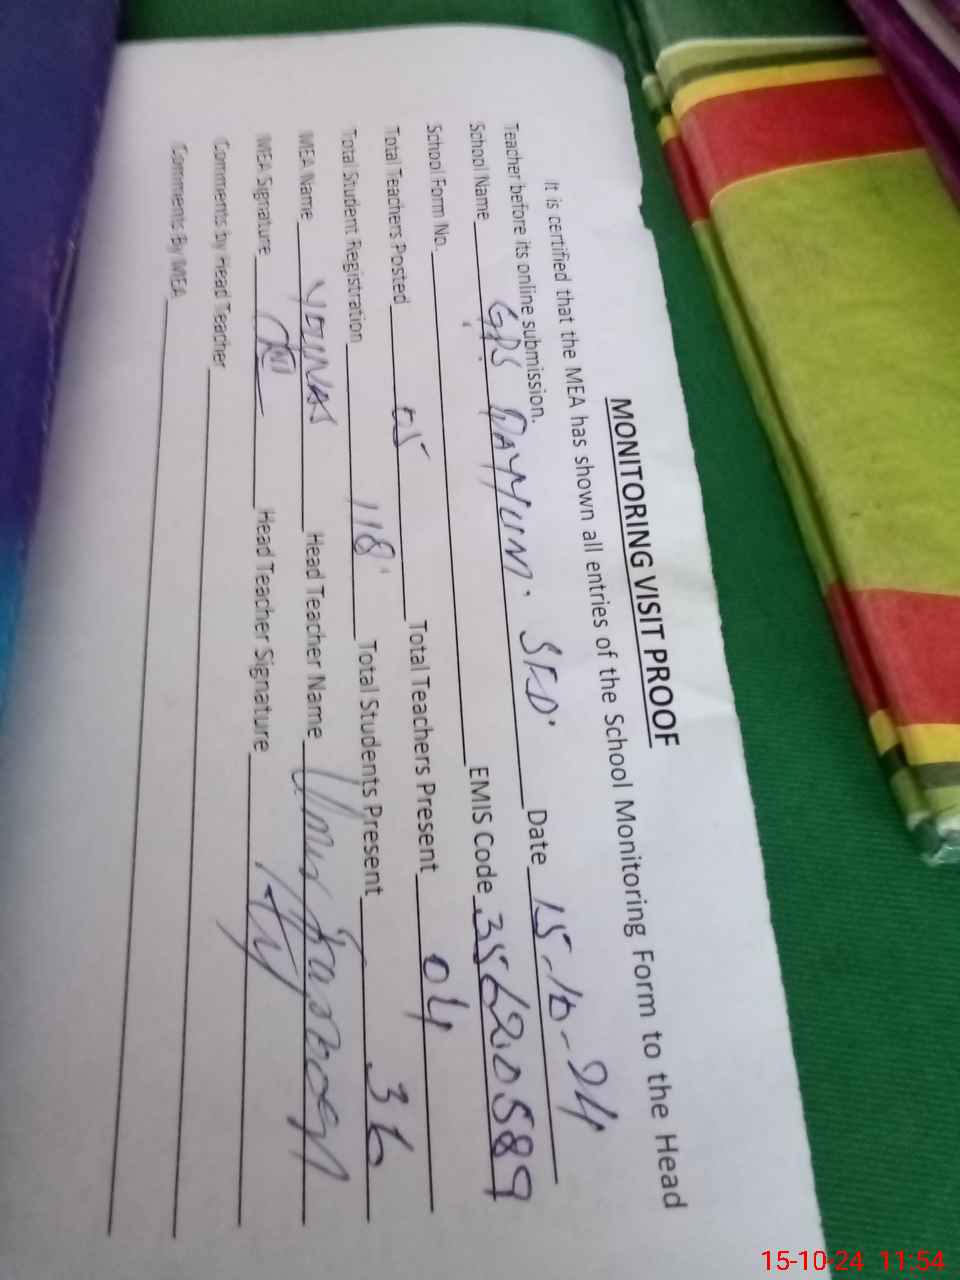 MONITORING VISIT PROOF
It is certified that the MEA has shown all entries of the School Monitoring Form to the Head
Teacher before its online submission.
School Name GPS QAYYUM. SFD. Date 15-10-24
School Form No. EMIS Code 35620589
Total Teachers Posted 05 Total Teachers Present 04
Total Student Registration 118 Total Students Present 36
MEA Name YOUNAS Head Teacher Name Umar Farooq
MEA Signature Head Teacher Signature
Comments by Head Teacher
Comments By MEA
15-10-24 11:54